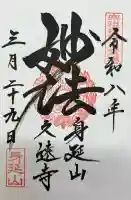 令和八年
身延山
久遠寺
妙法
三月二十九日
身延山